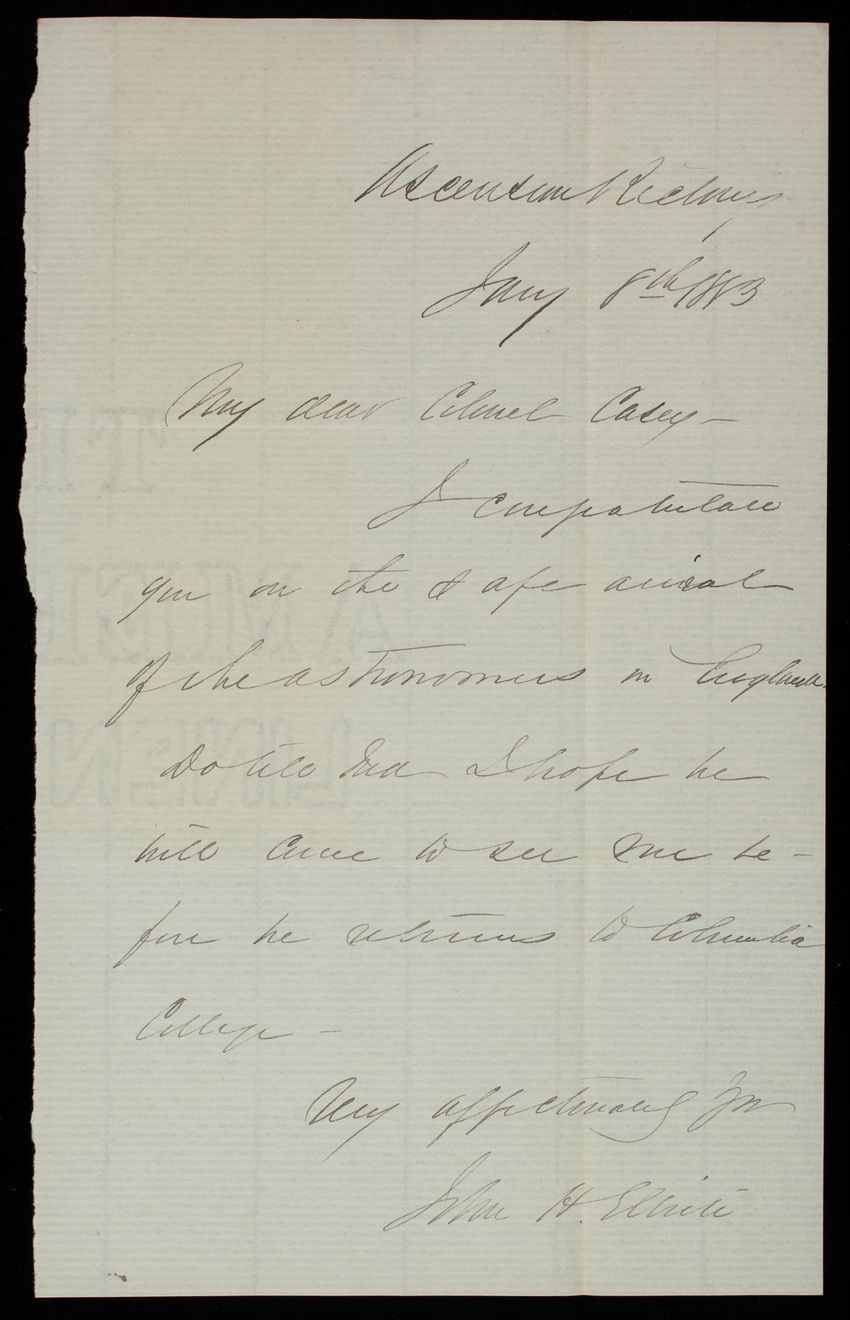 Ascension Rectory
Jany 8th 1883
My dear Colonel Casey -
I congratulate
you on the safe arrival
of the astronomers in England.
Do tell I hope he
will come to see me be-
fore he returns to Columbia
College -
Very affectionately Yrs
John H. Elliott